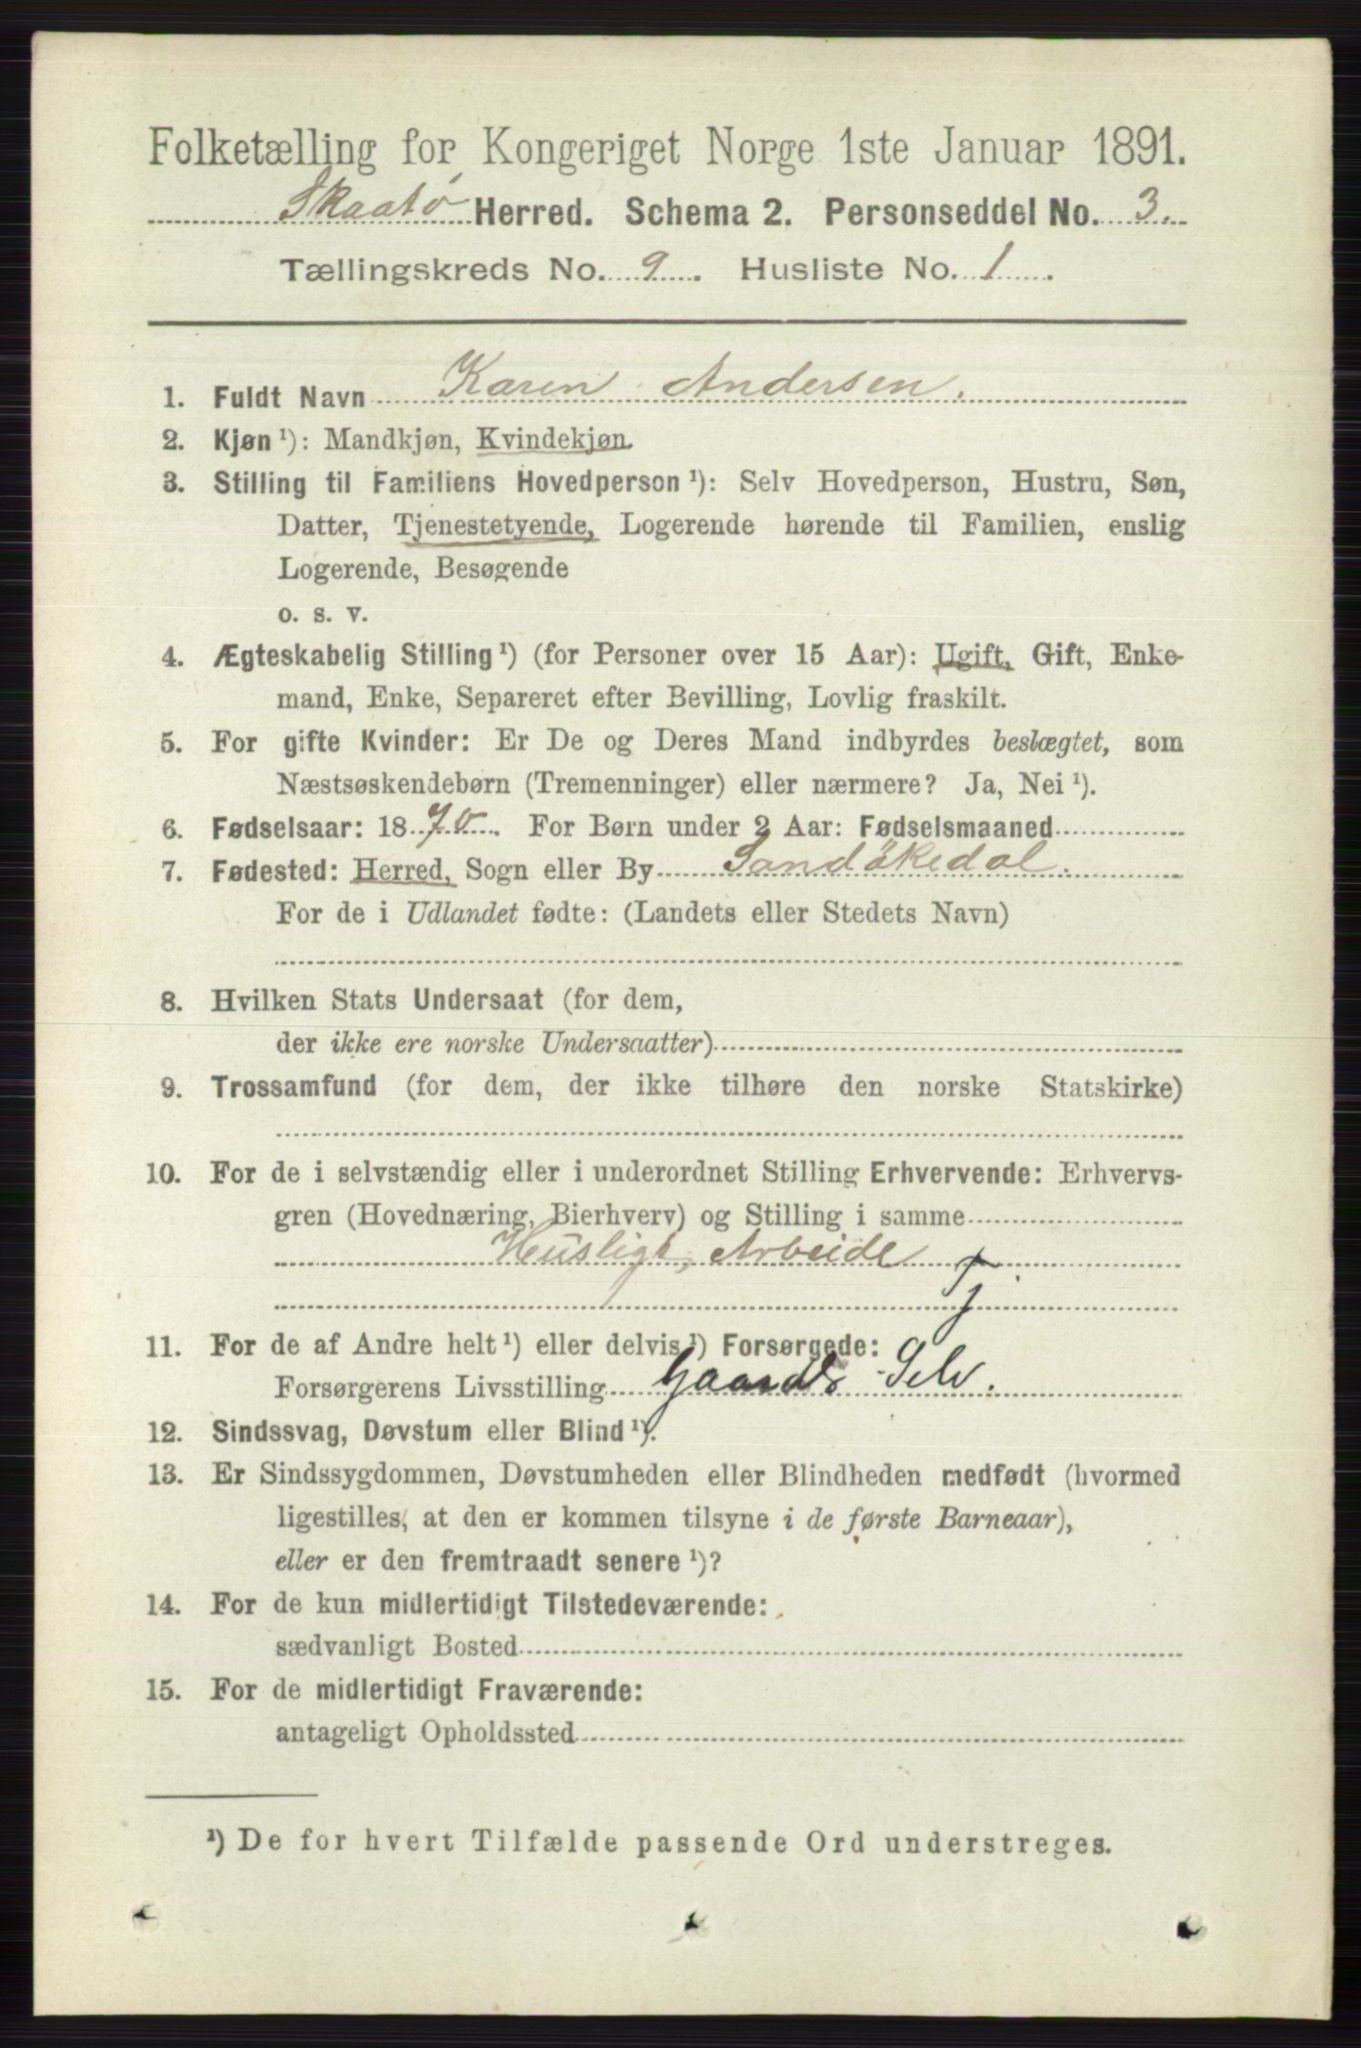 Folketælling for Kongeriget Norge 1ste Januar 1891.
Skaatø Herred. Schema 2. Personseddel No. 3.
Tællingskreds No. 9. Husliste No. 1.
1. Fuldt Navn Karen Andersen.
2. Kjøn ¹): Mandkjøn, Kvindekjøn.
3. Stilling til Familiens Hovedperson ¹): Selv Hovedperson, Hustru, Søn,
Datter, Tjenestetyende, Logerende hørende til Familien, enslig
Logerende, Besøgende
o. s. v.
4. Ægteskabelig Stilling ¹) (for Personer over 15 Aar): Ugift, Gift, Enke-
mand, Enke, Separeret efter Bevilling, Lovlig fraskilt.
5. For gifte Kvinder: Er De og Deres Mand indbyrdes beslægtet, som
Næstsøskendebørn (Tremenninger) eller nærmere? Ja, Nei ¹).
6. Fødselsaar: 1870. For Børn under 2 Aar: Fødselsmaaned
7. Fødested: Herred, Sogn eller By Sandökedal.
For de i Udlandet fødte: (Landets eller Stedets Navn)
8. Hvilken Stats Undersaat (for dem,
der ikke ere norske Undersaatter)
9. Trossamfund (for dem, der ikke tilhøre den norske Statskirke)
10. For de i selvstændig eller i underordnet Stilling Erhvervende: Erhvervs-
gren (Hovednæring, Bierhverv) og Stilling i samme
Husligt, Arbeide Tj
11. For de af Andre helt ¹) eller delvis ¹) Forsørgede:
Forsørgerens Livsstilling Gaardb Selv.
12. Sindssvag, Døvstum eller Blind ¹).
13. Er Sindssygdommen, Døvstumheden eller Blindheden medfødt (hvormed
ligestilles, at den er kommen tilsyne i de første Barneaar),
eller er den fremtraadt senere ¹)?
14. For de kun midlertidigt Tilstedeværende:
sædvanligt Bosted
15. For de midlertidigt Fraværende:
antageligt Opholdssted
¹) De for hvert Tilfælde passende Ord understreges.